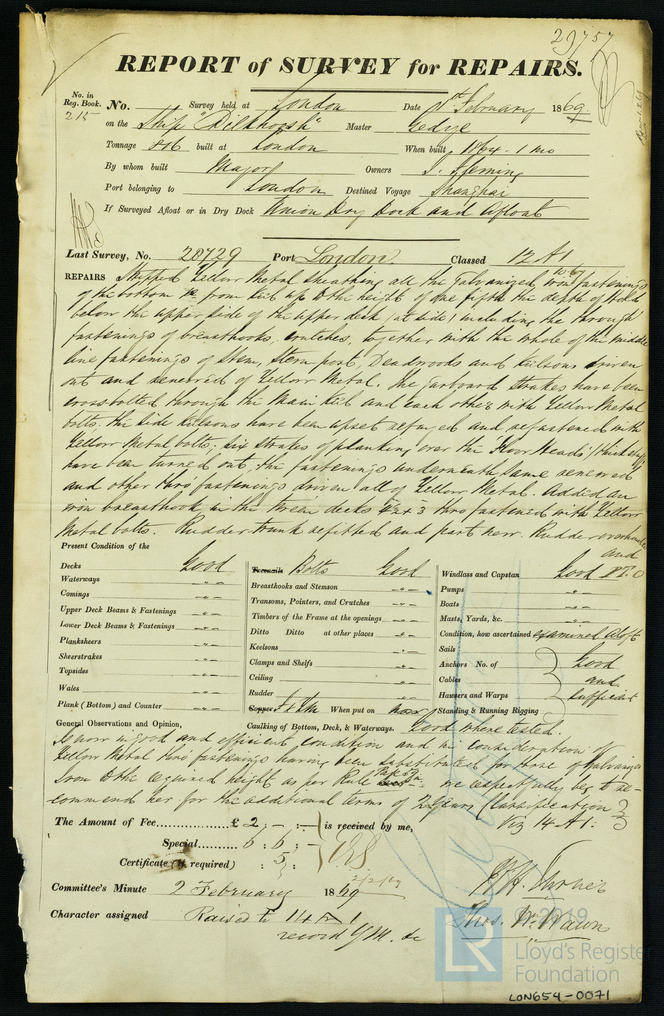 29757
REPORT of SURVEY for REPAIRS.
No. in Reg. Book. 215 No. Survey held at London Date 1st February 1869
on the Ship "Dilkhoosh" Master Gedye
Tonnage 816 built at London When built 1864-1 mo
By whom built Major Owners J. Fleming
Port belonging to London Destined Voyage Shanghai
If Surveyed Afloat or in Dry Dock Union Dry Dock and Afloat
Last Survey, No. 28729 Port London. Classed 12 A1
REPAIRS Stripped Yellow Metal Sheathing all the Galvanized iron fastenings
of the bottom from keel up to the height of one fifth the depth of Hold
below the upper side of the upper deck (at side) including the through
fastenings of breasthooks, crutches, together with the whole of the middle
line fastenings of Stem, Stern post, Deadwoods and keelsons driven
out and renewed of Yellow Metal. The garboard strakes have been
crossbolted through the Main keel and each other with Yellow Metal
bolts. the side keelsons have been upset refayed and refastened with
Yellow Metal bolts; six strakes of planking over the Floor Heads
have been turned out, the fastenings underneath same renewed
and other thro fastenings driven all of Yellow Metal. Added an
iron breasthook in the tween decks & 2 & 3 thro fastened with Yellow
Metal bolts. Rudder trunk refitted and part new. Rudder overhauled
and
P.T.O
Present Condition of the
Decks Good
Waterways " "
Comings " "
Upper Deck Beams & Fastenings " "
Lower Deck Beams & Fastenings " "
Planksheers " "
Sheerstrakes " "
Topsides " "
Wales " "
Plank (Bottom) and Counter " "
Treenails Bolts Good
Breasthooks and Stemson " "
Transoms, Pointers, and Crutches " "
Timbers of the Frame at the openings " "
Ditto Ditto at other places " "
Keelsons " "
Clamps and Shelfs " "
Ceiling " "
Rudder " "
Copper When put on now
Caulking of Bottom, Deck, & Waterways. Good where tested.
Windlass and Capstan Good
Pumps " "
Boats " "
Masts, Yards, &c. " "
Condition, how ascertained examined Aloft
Sails
Anchors No. of Good
Cables and
Hawsers and Warps sufficient
Standing & Running Rigging
General Observations and Opinion,
Is now in good and efficient condition and in consideration of
Yellow Metal thro fastenings having been substituted for those of Galvanized
Iron to the required height as per Rule Page 57 we respectfully beg to re-
commend her for the additional terms of 2 Years Classification
Viz 14 A1.
The Amount of Fee £ 2 : - : - is received by me,
Special 5 : 5 : -
Certificate (if required) : 5 :
2/2/69
Committee's Minute 2 February 1869
Character assigned Raised to 14 A 1
record Y.M. &c
Thos. W. Wawn
© 2019
LR Lloyd's Register
Foundation
LON654-0071